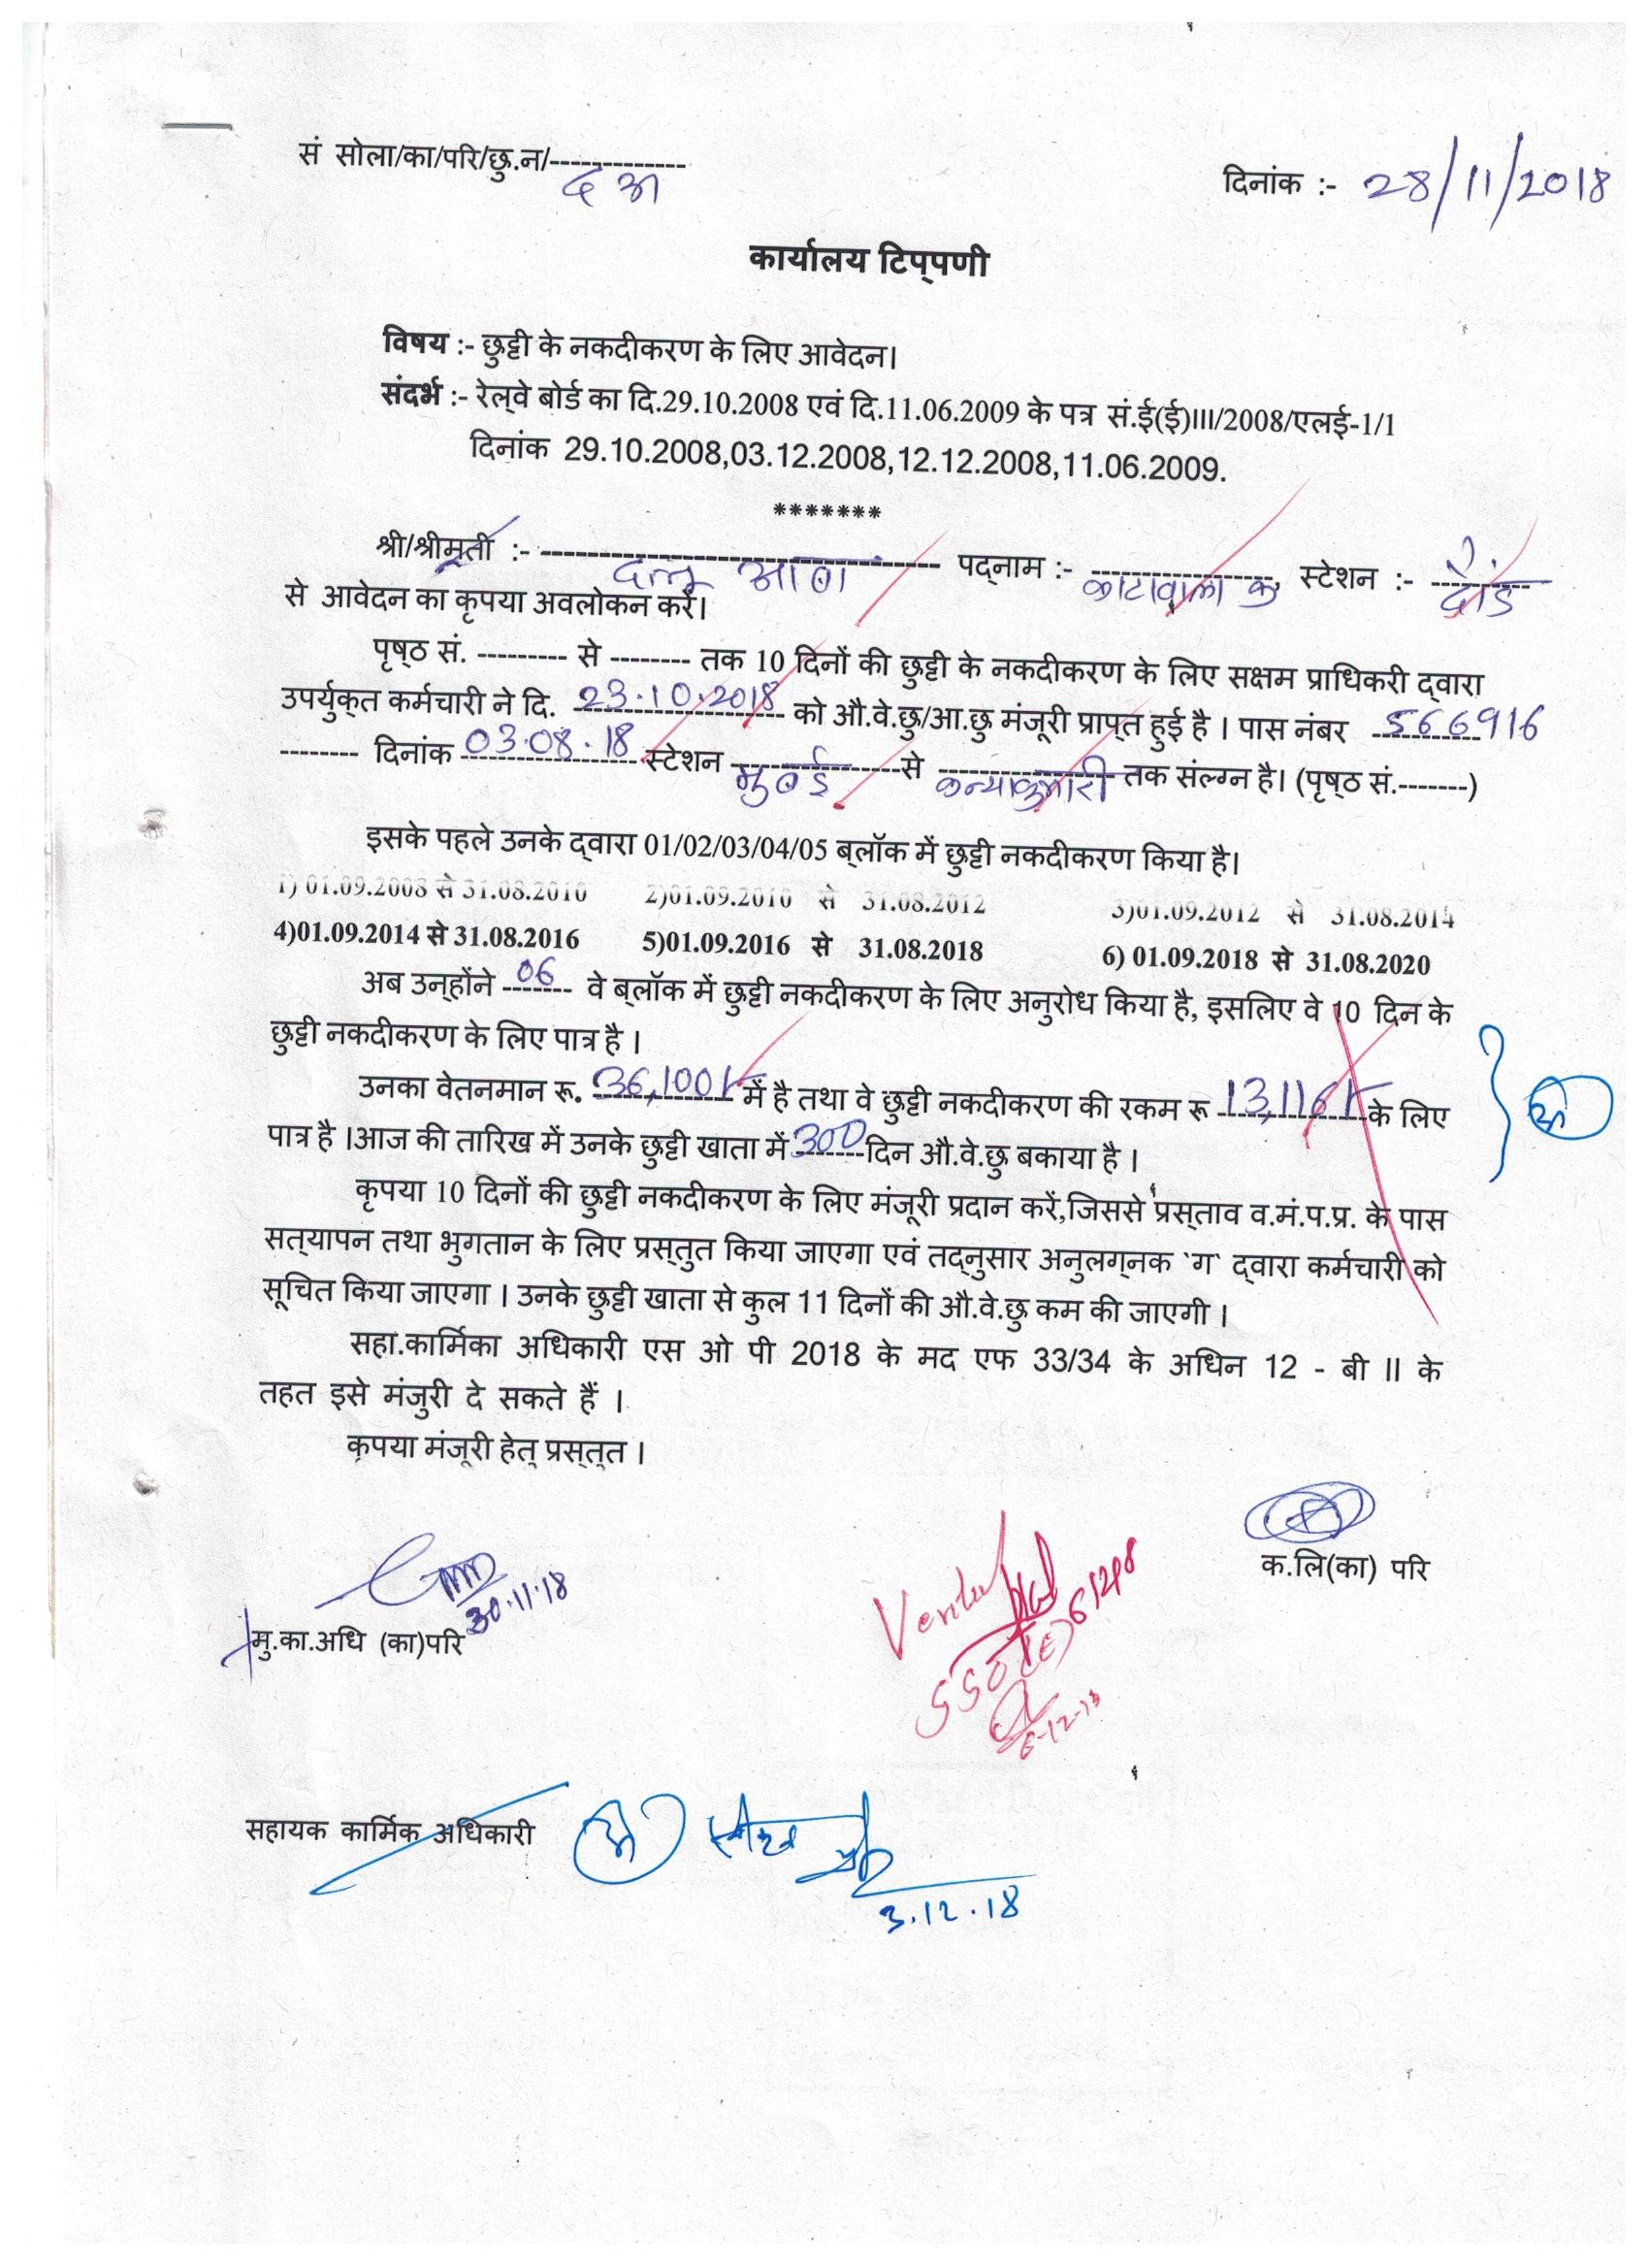 सं सोला/का/परि/छु.न/-------------
द अ
दिनांक :- 28/11/2018
कार्यालय टिप्पणी
विषय :- छुट्टी के नकदीकरण के लिए आवेदन।
संदर्भ :- रेल्वे बोर्ड का दि.29.10.2008 एवं दि.11.06.2009 के पत्र सं.ई(ई)III/2008/एलई-1/1
दिनांक 29.10.2008,03.12.2008,12.12.2008,11.06.2009.
*******
श्री/श्रीमती :- दत्तू आबा पद्नाम :- काटावाला क, स्टेशन :- दौंड
से आवेदन का कृपया अवलोकन करें।
पृष्ठ सं. --------- से -------- तक 10 दिनों की छुट्टी के नकदीकरण के लिए सक्षम प्राधिकरी द्वारा
उपर्युक्त कर्मचारी ने दि. 23.10.2018 को औ.वे.छु/आ.छु मंजूरी प्राप्त हुई है । पास नंबर 566916
-------- दिनांक 03.08.18 स्टेशन मुंबई से कन्याकुमारी तक संल्ग्न है। (पृष्ठ सं.-------)
इसके पहले उनके द्वारा 01/02/03/04/05 ब्लॉक में छुट्टी नकदीकरण किया है।
1) 01.09.2008 से 31.08.2010 2)01.09.2010 से 31.08.2012 3)01.09.2012 से 31.08.2014
4)01.09.2014 से 31.08.2016 5)01.09.2016 से 31.08.2018 6) 01.09.2018 से 31.08.2020
अब उन्होंने 06 वे ब्लॉक में छुट्टी नकदीकरण के लिए अनुरोध किया है, इसलिए वे 10 दिन के
छुट्टी नकदीकरण के लिए पात्र है ।
उनका वेतनमान रू. 36,100/- में है तथा वे छुट्टी नकदीकरण की रकम रू 13,116/- के लिए
पात्र है ।आज की तारिख में उनके छुट्टी खाता में 300 दिन औ.वे.छु बकाया है ।
कृपया 10 दिनों की छुट्टी नकदीकरण के लिए मंजूरी प्रदान करें,जिससे प्रस्ताव व.मं.प.प्र. के पास
सत्यापन तथा भुगतान के लिए प्रस्तुत किया जाएगा एवं तद्नुसार अनुलग्नक `ग` द्वारा कर्मचारी को
सूचित किया जाएगा । उनके छुट्टी खाता से कुल 11 दिनों की औ.वे.छु कम की जाएगी ।
सहा.कार्मिका अधिकारी एस ओ पी 2018 के मद एफ 33/34 के अधिन 12 - बी II के
तहत इसे मंजुरी दे सकते हैं ।
कृपया मंजूरी हेतु प्रस्तुत ।
क.लि(का) परि
30.11.18
मु.का.अधि (का)परि
SSO(E)
6-12-18
सहायक कार्मिक अधिकारी
3.12.18